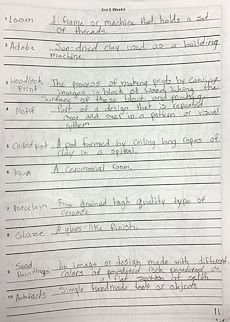 3rd 6 Weeks
1 Loom A frame or machine that holds a set
of threads.
2 Adobe Sun-dried clay used as a building
machine.
3 Woodblock The process of making prints by carving
Print images in block of wood, inking the
surface of these block and printing.
4 Motif Part of a design that is repeated
over and over in a pattern or visual
rhythm
5 Coiled pot A pot formed by coiling long ropes of
clay in a spiral.
6 Kiva A ceremonial room.
7 Porcelain Fine grained high quality type of
ceramic
8 Glaze A glass-like finish.
9 Sand An image or design made with different
Paintings colors of powdered rock powdered on
a flat section of
10 Artifacts Simple handmade tools or objects.
11